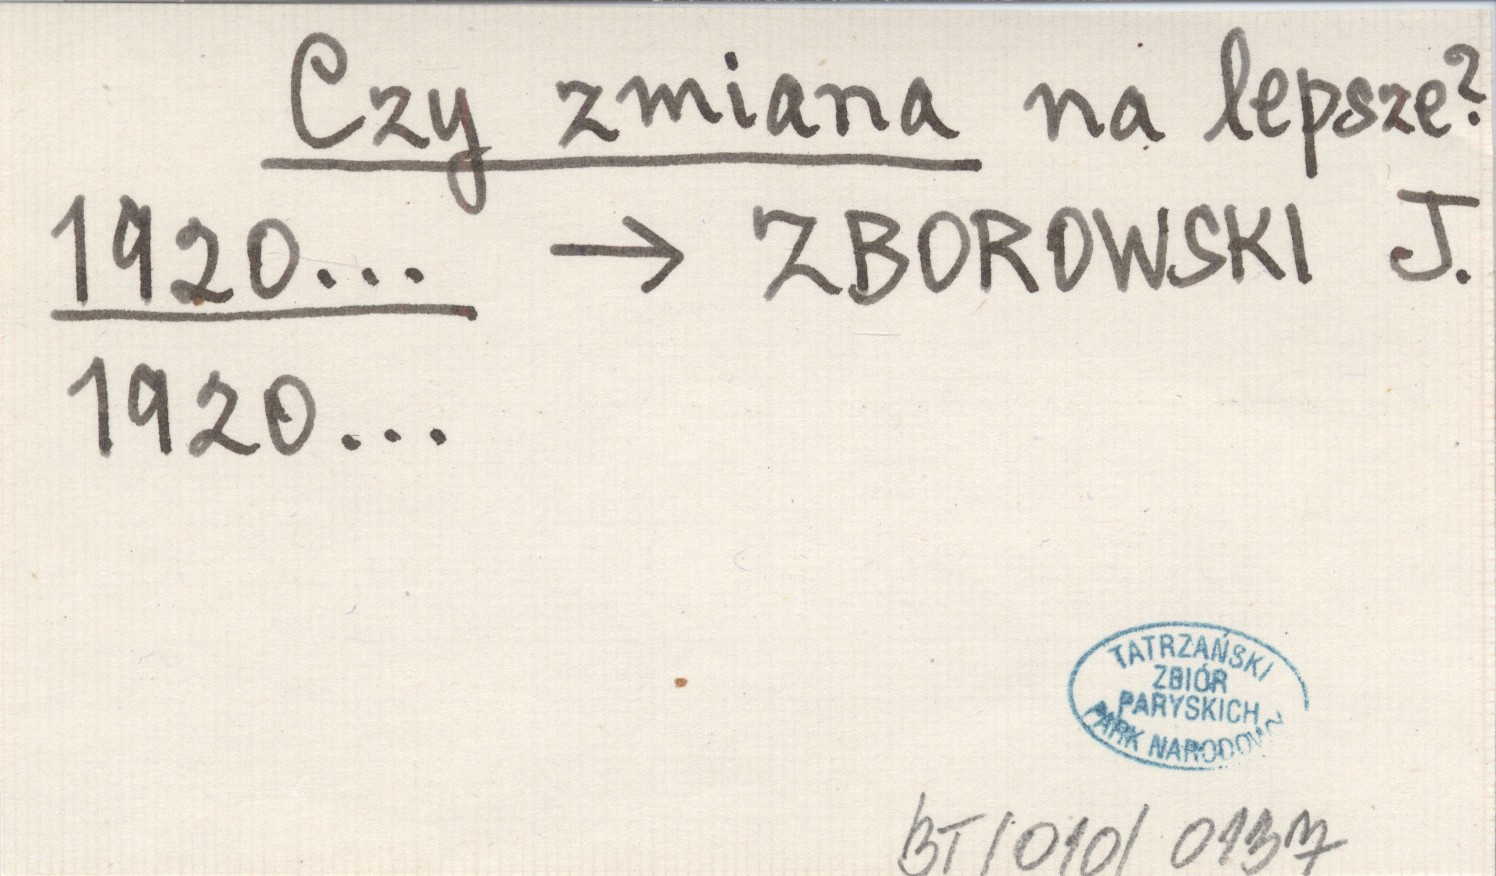 Czy zmiana na lepsze?
1920... → ZBOROWSKI J.
1920...
TATRZAŃSKI
ZBIÓR
PARYSKICH
PARK NARODOWY
BT/010/0137